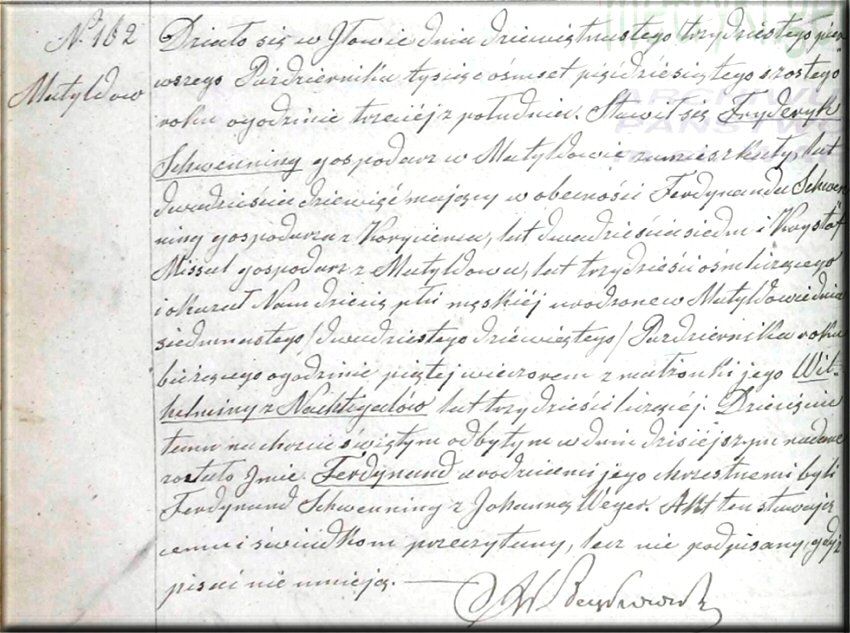 N. 162
Matyldow
Działo się w Iłowie dnia dziewiętnastego trzydziestego pier„
wszego Pazdziernika tysiąc osmset pięćdziesiątego szostego
roku o godzinie trzeciej z południa. Stawił się Fryderyk
Schwenning gospodarz w Matyldowie zamieszkały, lat
dwadzieścia dziewięć mający w obecności Ferdynanda Schwen
ning gospodarza z lat dwadzieścia siedm i Krysztof
Missal gospodarz z Matyldowa, lat trzydzieści osm liczącego
i okazał Nam dziecię płci męzkiéj urodzone w Matyldowie dnia
siedmnastego / dwudziestego dziewiątego / Pazdziernika roku
bieżącego o godzinie piątej wieczorem z małżonki jego Wil„
helminy z Nachtegalów lat trzydzieści liczącéj. Dziecięciu
temu na chrzcie świętym odbytym w dniu dzisiéjszym nadane
zostało Imie Ferdynand a rodzicami jego chrzestnemi byli
Ferdynand Schwenning z Johanną Weyer. Akt ten stawając
cemu i świadkom przeczytany, lecz nie podpisany, gdyż
pisać nie umieją.